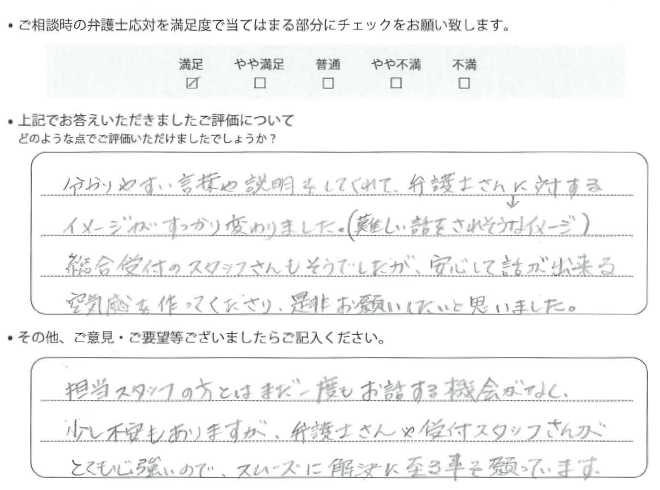 • ご相談時の弁護士応対を満足度で当てはまる部分にチェックをお願い致します。
満足 やや満足 普通 やや不満 不満
☑ □ □ □ □
• 上記でお答えいただきましたご評価について
どのような点でご評価いただけましたでしょうか？
分かりやすい言葉や説明をしてくれて、弁護士さんに対する
イメージがすっかり変わりました。(難しい話をされそうなイメージ)
総合受付のスタッフさんもそうでしたが、安心して話が出来る
空気感を作ってくださり、是非お願いしたいと思いました。
• その他、ご意見・ご要望等ございましたらご記入ください。
担当スタッフの方とはまだ一度もお話する機会がなく、
少し不安もありますが、弁護士さんや受付スタッフさんが
とても心強いので、スムーズに解決に至る事を願っています。